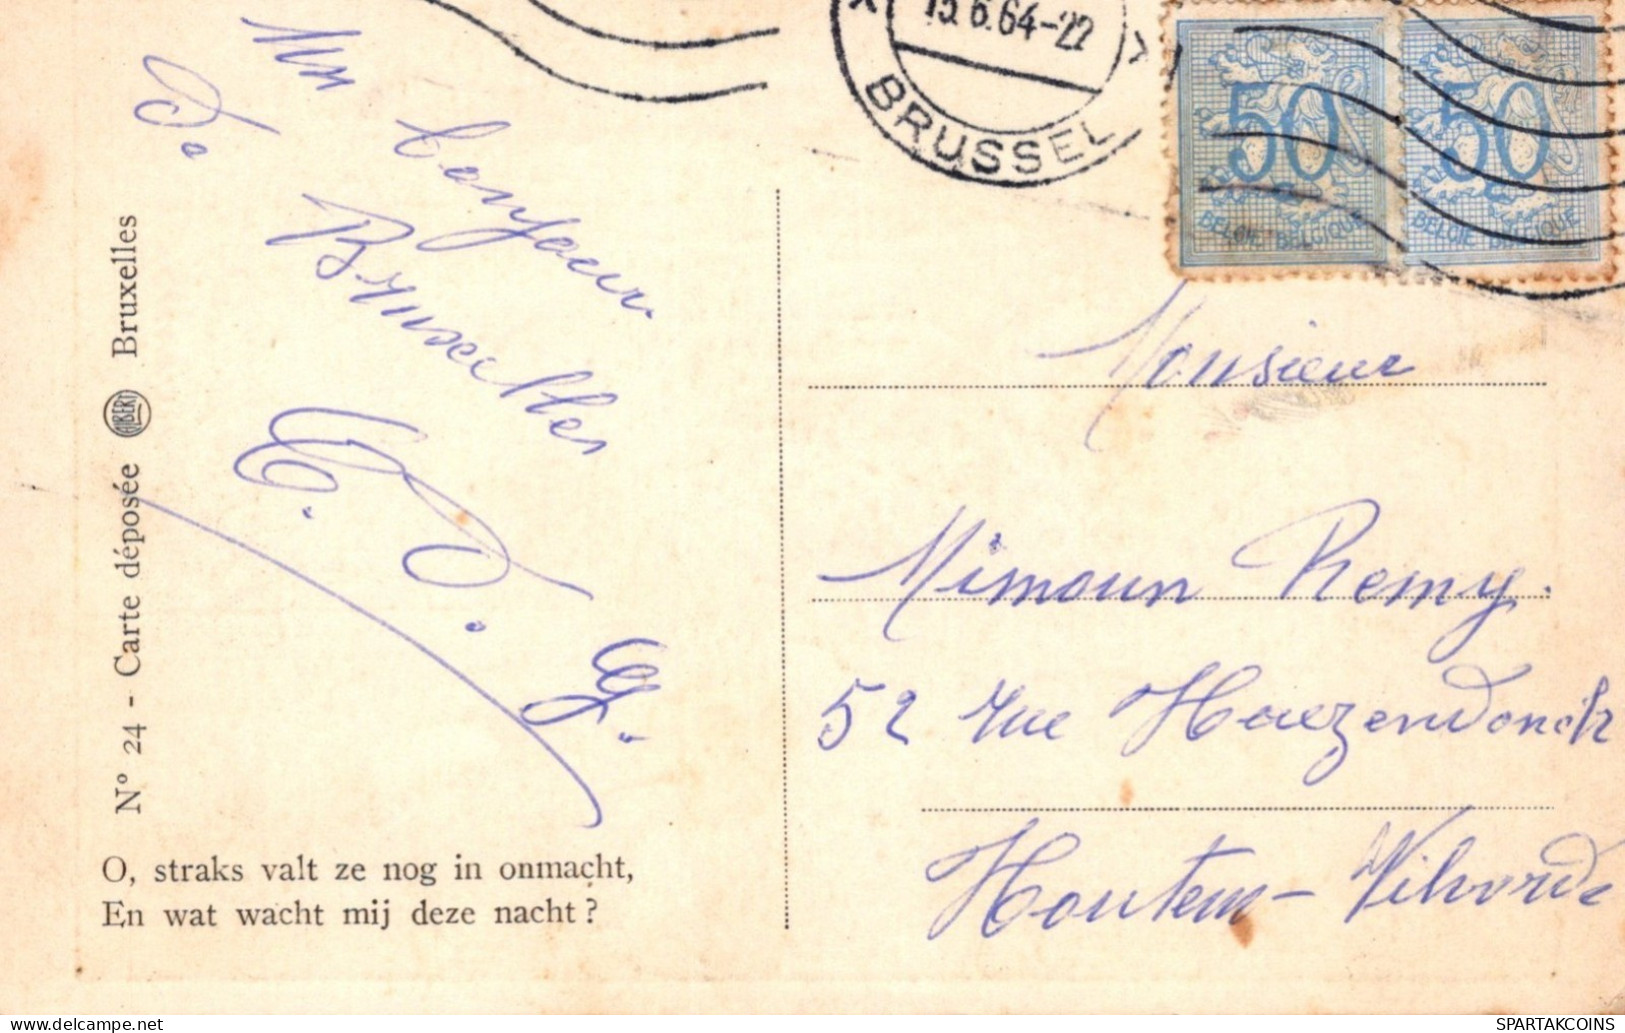 15.6.64-22
BRUSSEL
50
BELGIE BELGIQUE
50
BELGIE BELGIQUE
Un bonjour
De
Bruxelles
Monsieur
Mimoun Remy.
52 rue
Houtem-Vilvorde
N° 24 - Carte déposée ALBERT Bruxelles
O, straks valt ze nog in onmacht,
En wat wacht mij deze nacht?
SPARTAKCOINS
delcampe.net